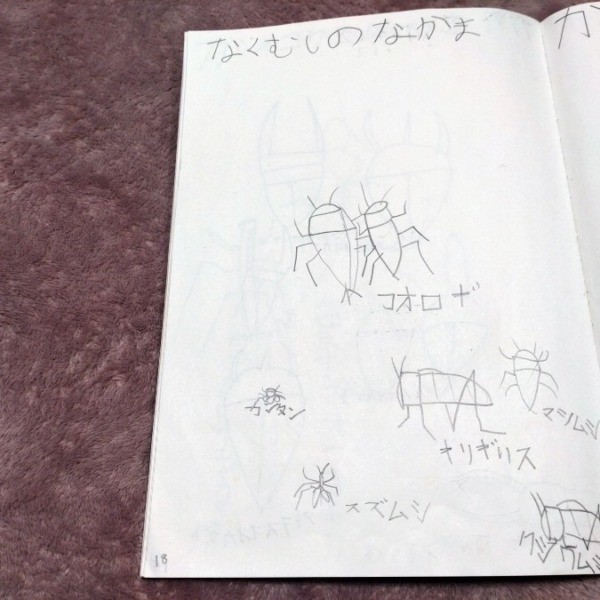 なくむしのなかま
カ
コオロギ
カンタン
マツムシ
キリギリス
スズムシ
クツワムシ
18